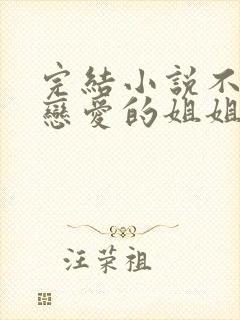 完結小説不
戀愛的姐姐
汪荣祖